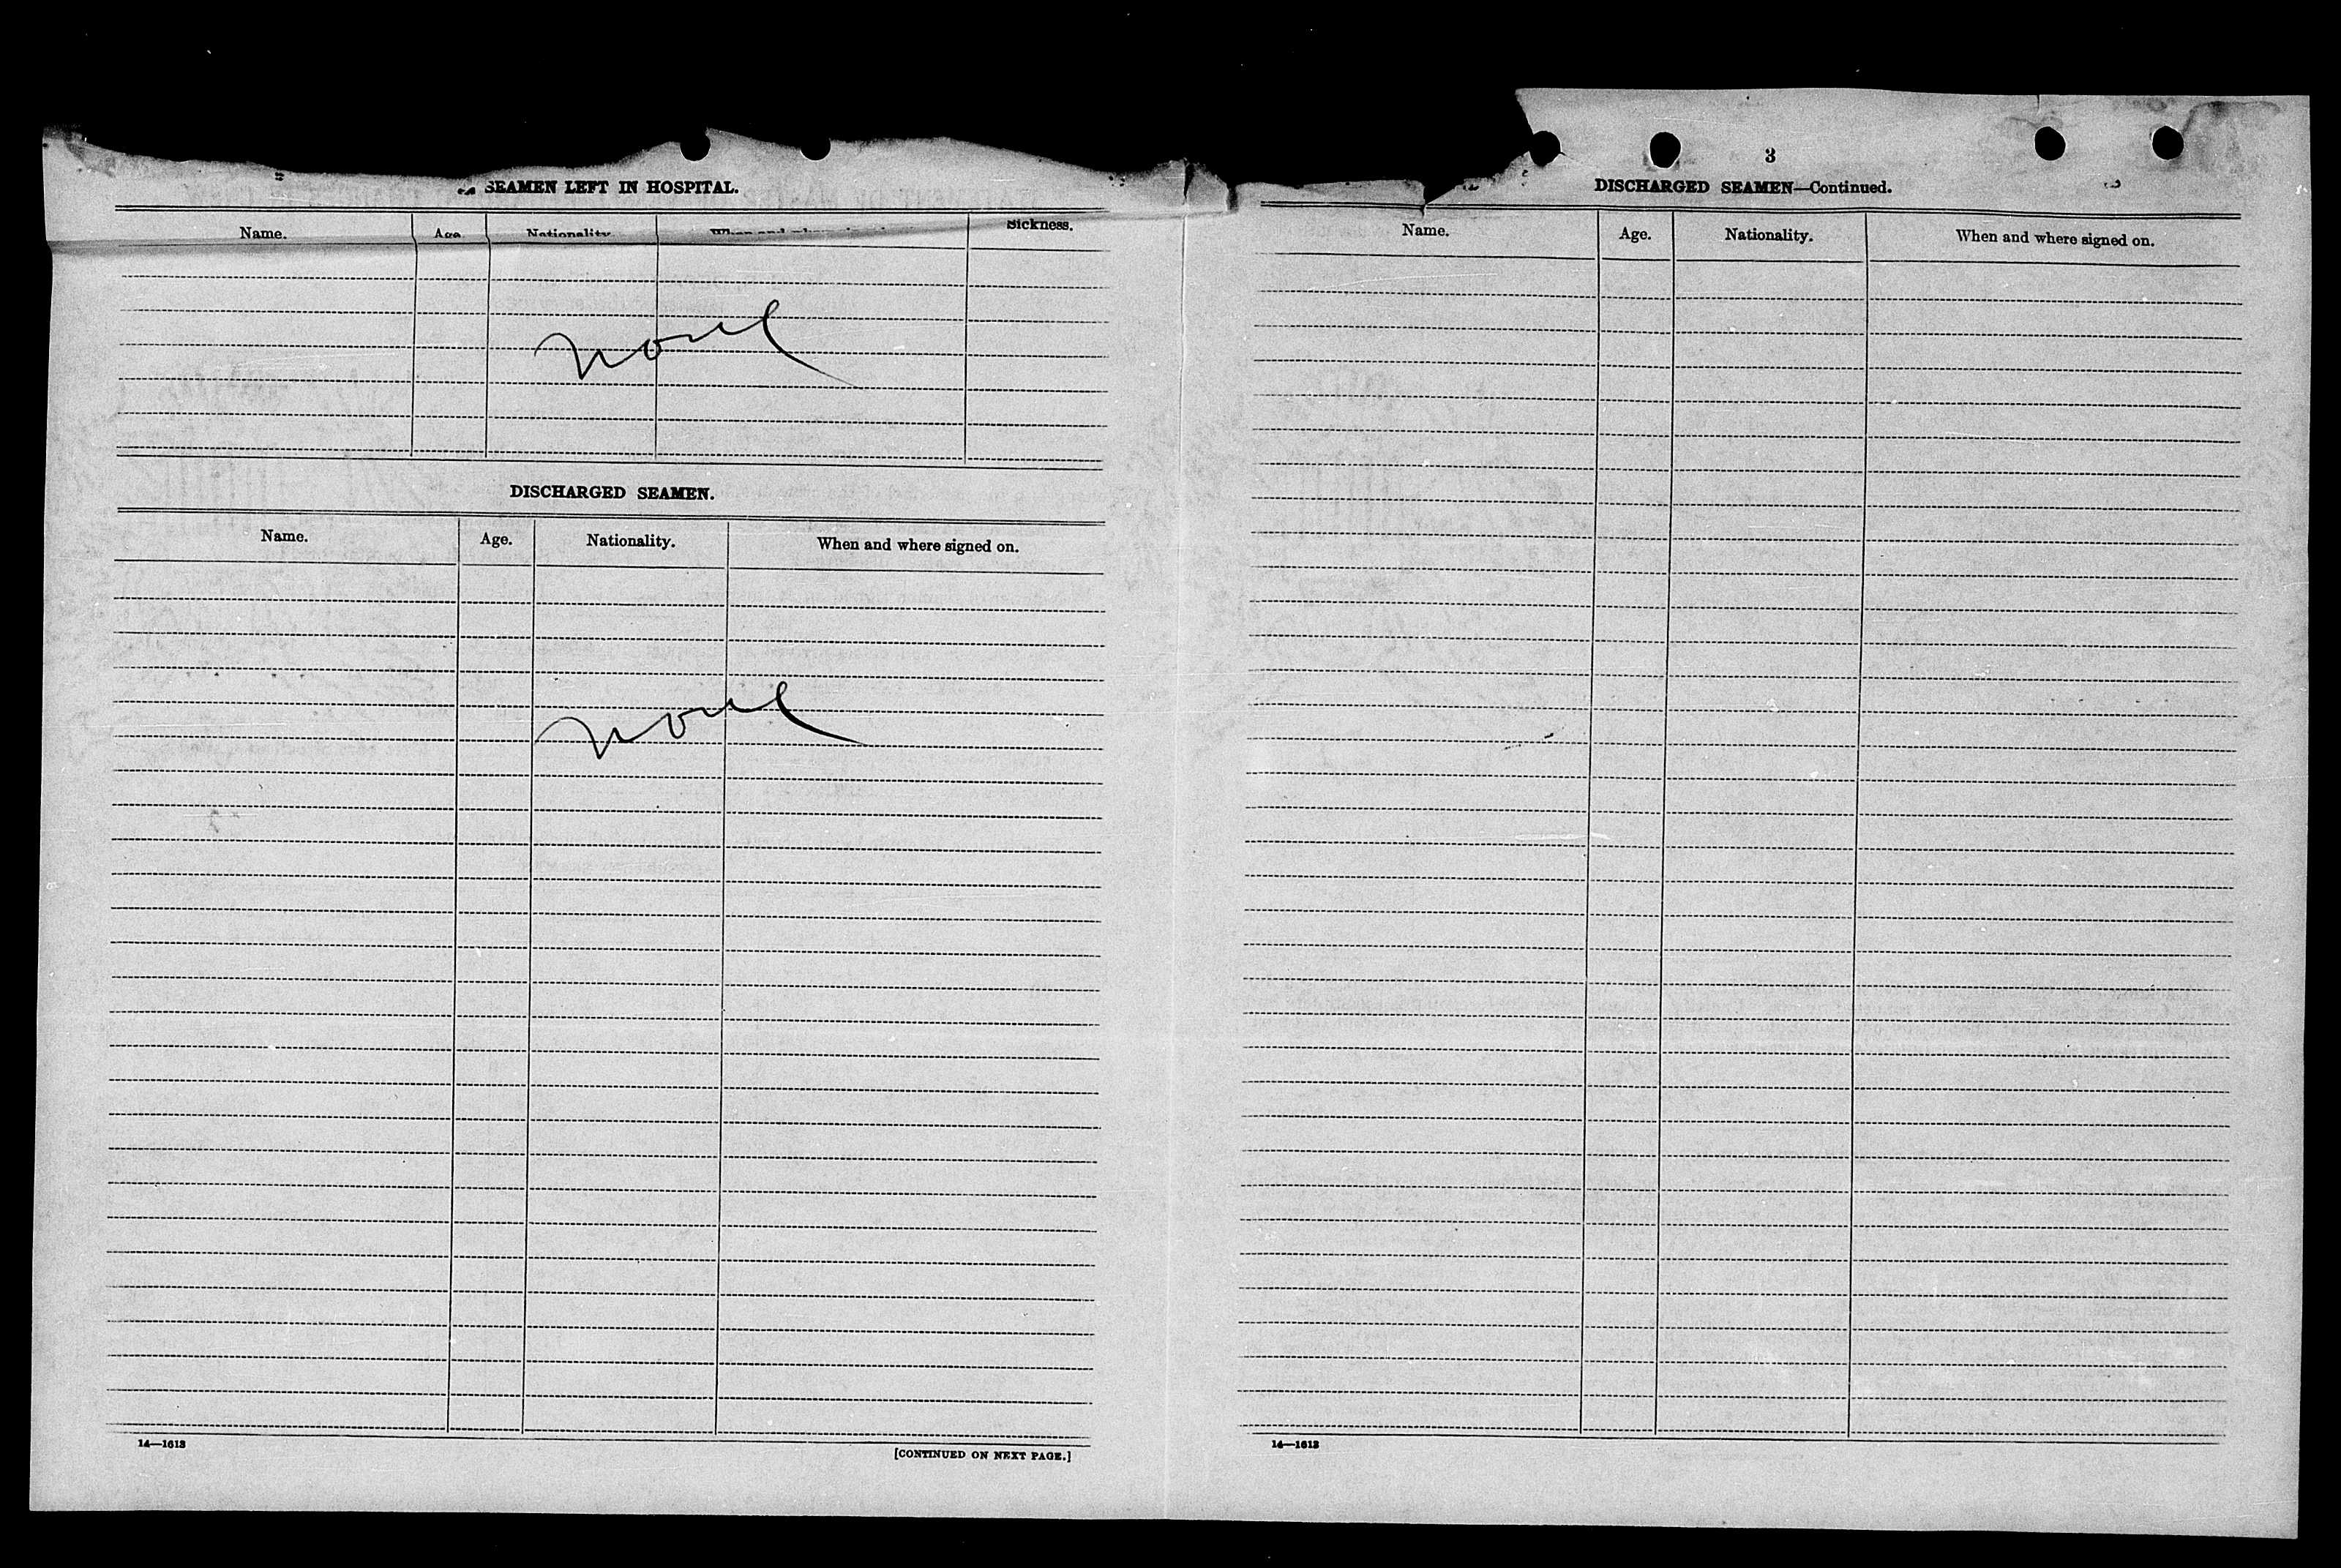 SEAMEN LEFT IN HOSPITAL.
Name. Age Nationality When and where Sickness.
None
DISCHARGED SEAMEN.
Name. Age. Nationality. When and where signed on.
None
14—1613
[CONTINUED ON NEXT PAGE.]
3
DISCHARGED SEAMEN—Continued.
Name. Age. Nationality. When and where signed on.
14—1613